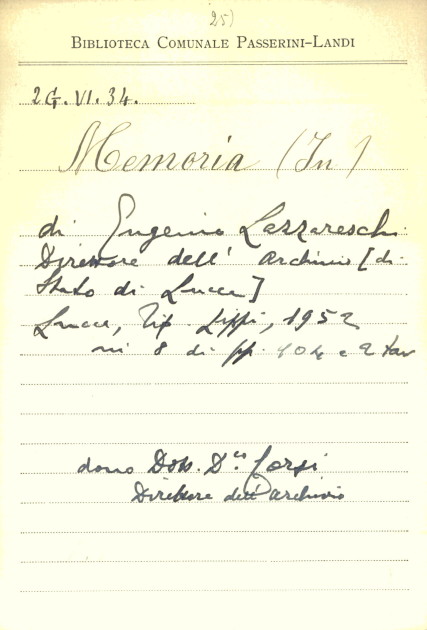 25)
BIBLIOTECA COMUNALE PASSERINI-LANDI
2G.VI.34.
Memoria (In)
di Eugenio Lazzareschi
Direttore dell' Archivio [di
Stato di Lucca]
Lucca, Tip. Lippi, 1952
in 8 di pp. 104 e 2 tav
dono Dott. D.co Corsi
Direttore dell'archivio